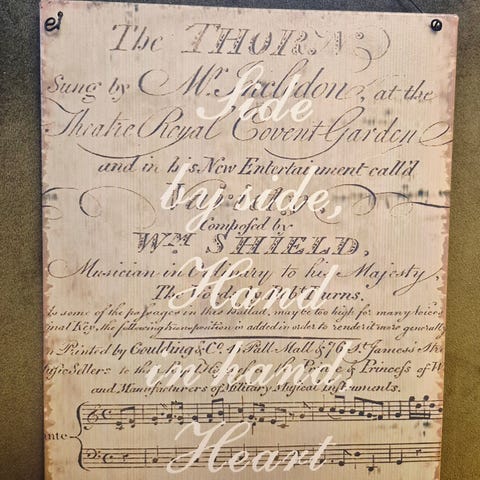 The THORN
Sung by Mr. Incledon, at the
Side
Theatre Royal Covent Garden
and in his New Entertainment call'd
by side,
Composed by
Wm. SHIELD,
Musician in Ordinary to his Majesty,
Hand
The Words by Robt. Burns.
As some of the passages in this Ballad, may be too high for many Voices
Key, the following transposition is added in order to render it more generally
Printed by Goulding & Co. Pall Mall & 76 St. James's
in hand
Sellers to Prince & Princess of W
and Manufacturers of Military Musical Instruments.
Heart